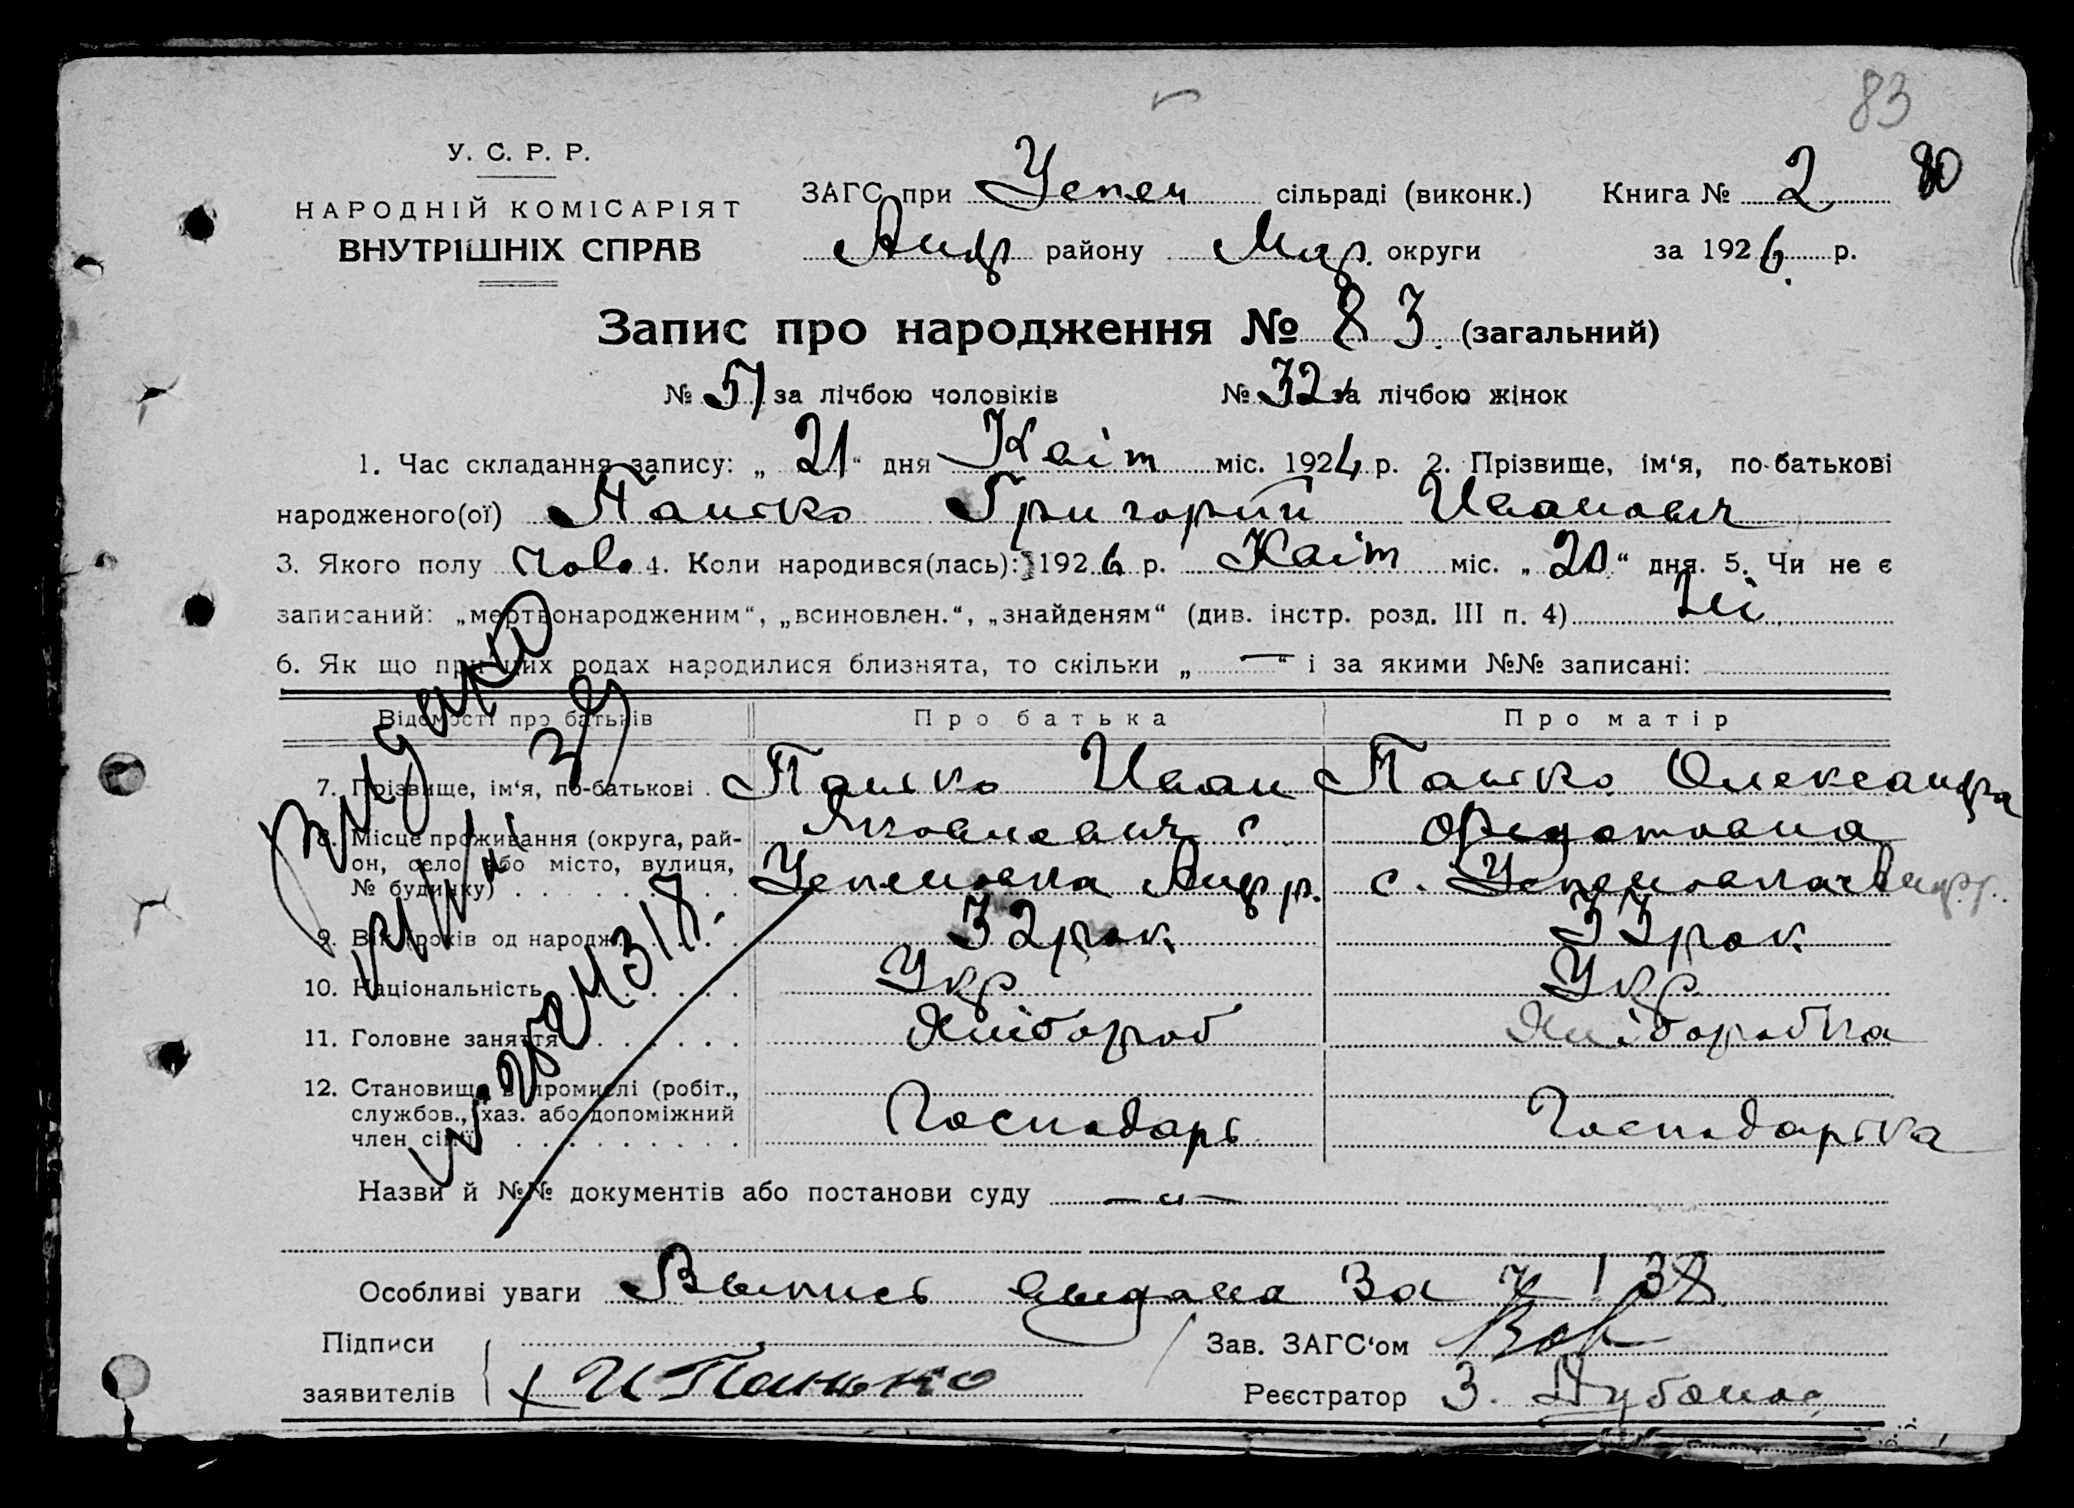 83
80
У. С. Р. Р.
НАРОДНІЙ КОМІСАРІЯТ
ВНУТРІШНІХ СПРАВ
ЗАГС при Успен сільраді (виконк.) Книга № 2
Андр району Мар. округи за 1926 р.
Запис про народження № 83. (загальний)
№ 51 за лічбою чоловіків № 32 за лічбою жінок
1. Час складання запису: „ 21 “ дня Квіт міс. 1926 р. 2. Прізвище, ім‘я, по-батькові
народженого(ої) Панько Григорий Иванович
3. Якого полу чоло 4. Коли народився(лась): 1926 р. Квіт міс. „ 20 “ дня. 5. Чи не є
записаний: „мертвонародженим“, „всиновлен.“, „знайденям“ (див. інстр. розд. III п. 4) Ні
6. Як що при цих родах народилися близнята, то скільки „ — “ і за якими №№ записані:
Відомості про батьків Про батька Про матір
7. Прізвище, ім‘я, по-батькові . Панько Иван Панько Олександра
Яковлевич с Федотовна
8. Місце проживання (округа, рай-
он, село або місто, вулиця,
№ будинку) Успеновка Андр р. с. Успеновка Андр р.
9. Вік (років од народж. 32 рок 33 рок
10. Національність Укр Укр
11. Головне заняття Хлібороб Хліборобка
12. Становище в промислі (робіт.,
службов., хаз. або допоміжний
член сім‘ї Господарь Господарька
Назви й №№ документів або постанови суду — „ —
Особливі уваги Выпись выдана За 7 / 38
Підписи
заявителів И Панько
Зав. ЗАГС‘ом
Реєстратор З.